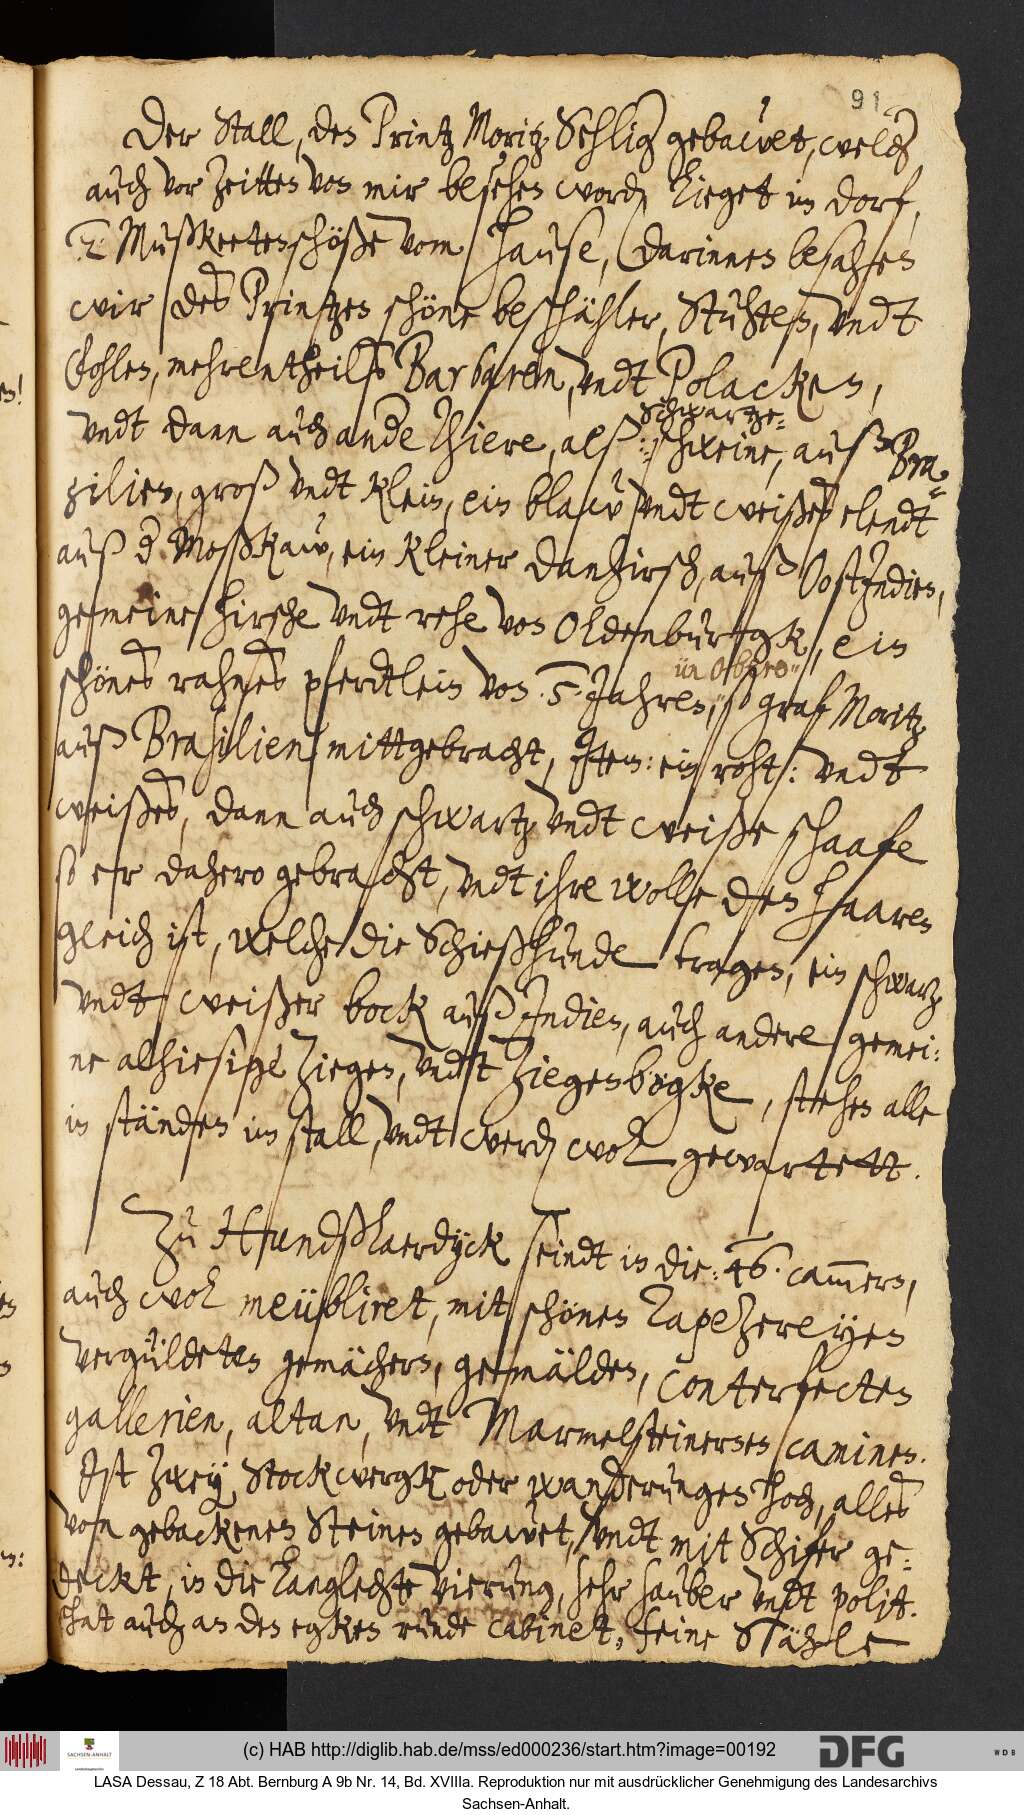 91
Der Stall, den Printz Moritz Sehlig gebawet, welch
auch vor zeitten von mir besehen word, lieget im dorf,
2 Mußkeetenschöße vom Hause, Darinnen besahen
wir des Printzen schöne beschähler, Stuhten, undt
fohlen, mehrentheilß Barbaren, undt Polacken,
undt dann auch ande thiere, alß: schwartze
schweine, auß Bra-
zilien, groß undt klein, ein blaw undt weißes elendt
auß d. Moßkaw, ein kleiner danhirsch, auß OostIndien,
gemeine hirsche undt rehe von Oldenburgk, ein
schönes rahnes pferdtlein von .5. Jahren, so graf Moritz
auß Brasilien mittgebracht, Item: ein roht: undt
weißes, dann auch schwartz undt weiße schaafe
so er dahero gebracht, undt ihre wolle den haaren
gleich ist, welche die Schießhunde tragen, ein schwartz
undt weißer bock auß Indien, auch andere gemei:
ne alhiesige Ziegen, undt Ziegenbögke, stehen alle
in ständen im stall, undt werd wol gewartett.
Zu Hundßlaerdyck seindt in die .46. cammern,
auch wol meübliret, mit schönen Tapezereyen
vergüldeten gemächern, gemälden, conterfecten
gallerien, altan, undt Marmelsteinernen caminen.
Ist zwey Stockwergk oder wanderungen hoch, alles
von gebackenen Steinen gebawet, undt mit Schifer ge:
deckt, in die Langlechte vierung, sehr sauber undt polit.
hat auch an den egken runde cabinet, feine Stähle
(c) HAB http://diglib.hab.de/mss/ed000236/start.htm?image=00192
SACHSEN-ANHALT
DFG
WDB
LASA Dessau, Z 18 Abt. Bernburg A 9b Nr. 14, Bd. XVIIIa. Reproduktion nur mit ausdrücklicher Genehmigung des Landesarchivs
Sachsen-Anhalt.